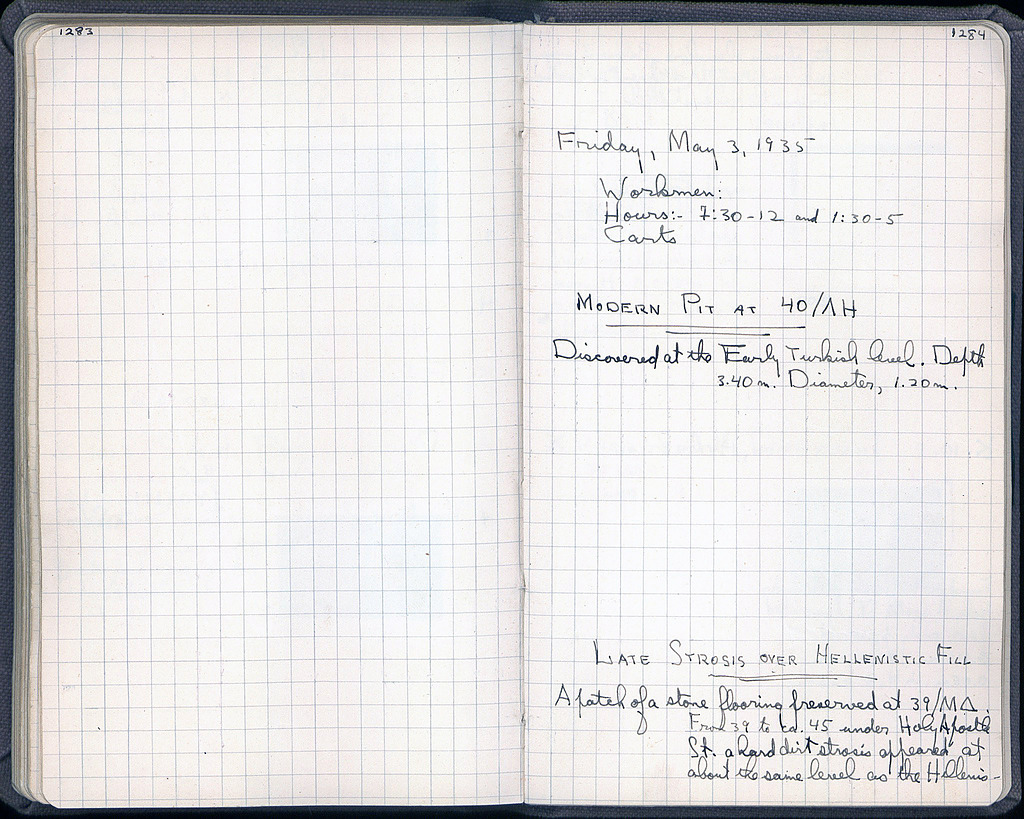 1283
1284
Friday, May 3, 1935
Workmen:
Hours:- 7:30-12 and 1:30-5
Carts
MODERN PIT AT 40/ΛH
Discovered at the Early Turkish level. Depth
3.40m. Diameter, 1.20m.
LATE STROSIS OVER HELLENISTIC FILL
A patch of a stone flooring preserved at 39/ΜΔ.
From 39 to ca. 45 under Holy Apostle
St. a hard dirt strosis appeared at
about the same level as the Hellenis-